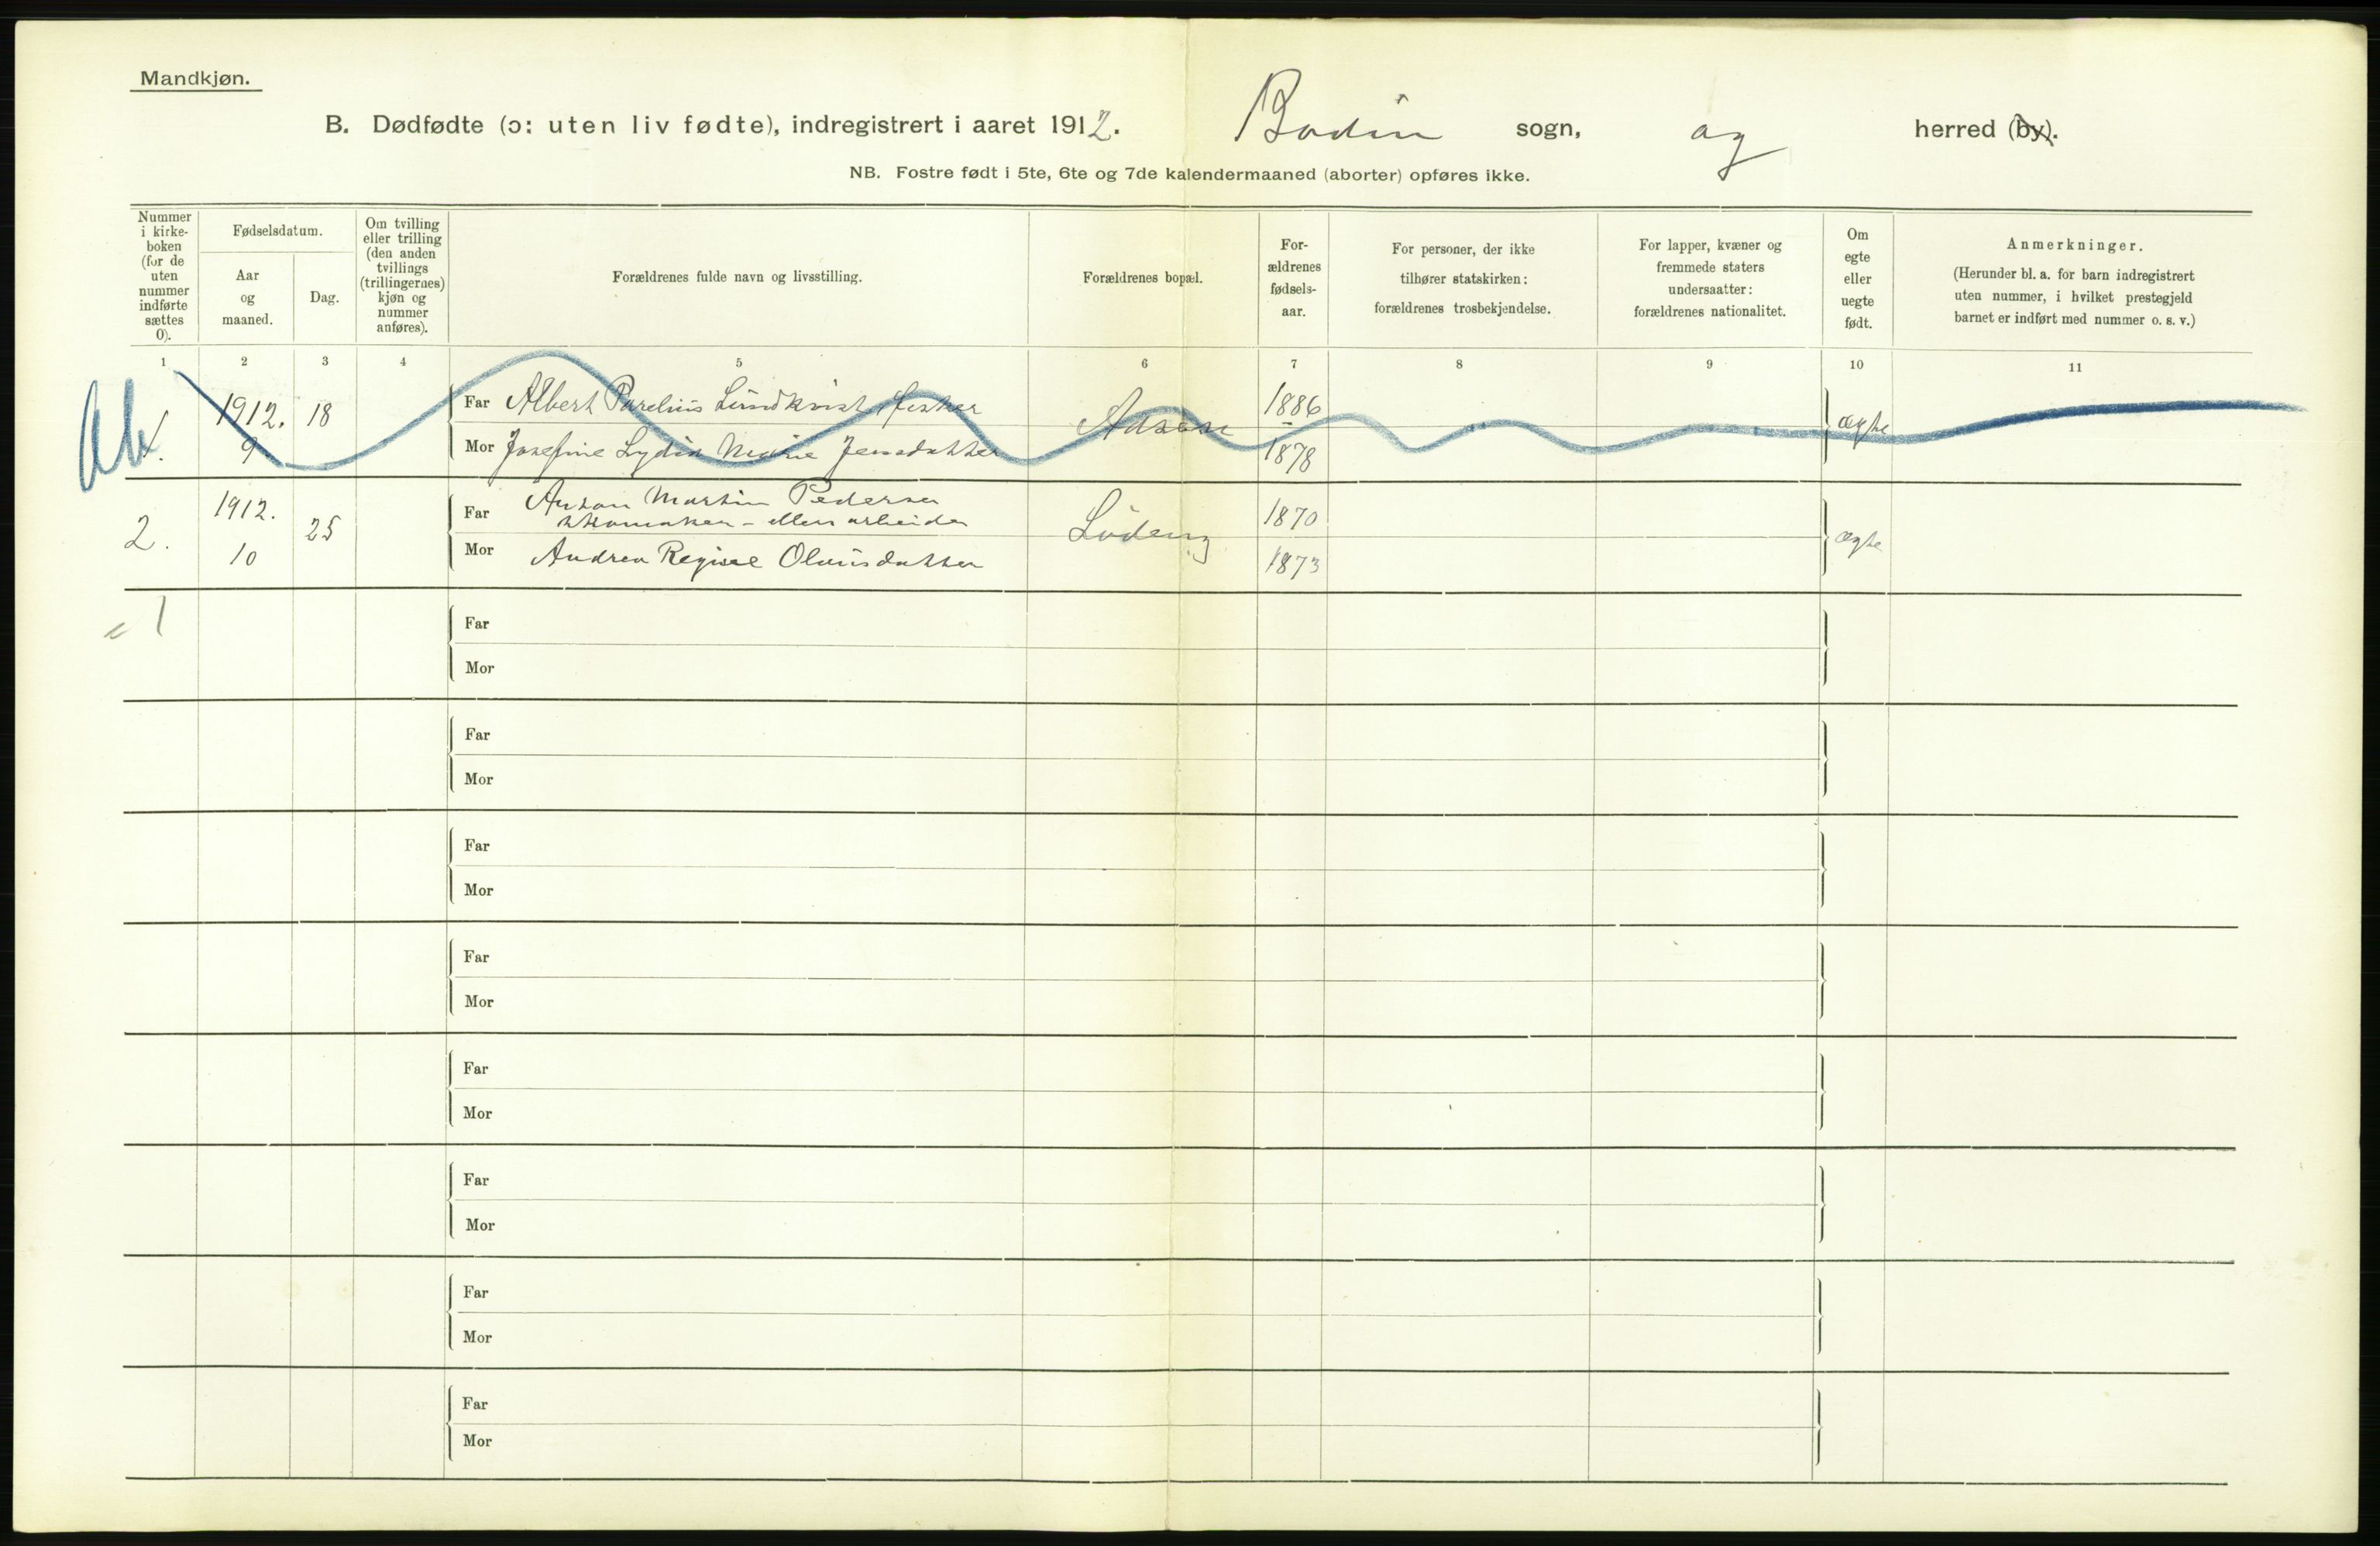 Mandkjøn.
B. Dødfødte (ɔ: uten liv fødte), indregistrert i aaret 1912. Bodin sogn, og herred (by).
NB. Fostre født i 5te, 6te og 7de kalendermaaned (aborter) opføres ikke.
Nummer
i kirke-
boken
(for de
uten
nummer
indførte
sættes
0).
Fødselsdatum.
Aar
og
maaned.
Dag.
Om tvilling
eller trilling
(den anden
tvillings
(trillingernes)
kjøn og
nummer
anføres).
Forældrenes fulde navn og livsstilling.
Forældrenes bopæl.
For-
ældrenes
fødsels-
aar.
For personer, der ikke
tilhører statskirken:
forældrenes trosbekjendelse.
For lapper, kvæner og
fremmede staters
undersaatter:
forældrenes nationalitet.
Om
egte
eller
uegte
født.
Anmerkninger.
(Herunder bl. a. for barn indregistrert
uten nummer, i hvilket prestegjeld
barnet er indført med nummer o. s. v.)
1 2 3 4 5 6 7 8 9 10 11
Ab
1.
1912.
9
18
Far Albert Parelius Lundkvist, fisker
Mor Josefine Lydia Marie Jensdatter
1886
1878
ægte
2.
1912.
10
25
Far Anton Martin Pedersen
skomaker - ellers arbeider
Mor Andrea Regine Olausdatter
Löding
1870
1873
ægte
1
Far
Mor
Far
Mor
Far
Mor
Far
Mor
Far
Mor
Far
Mor
Far
Mor
Far
Mor